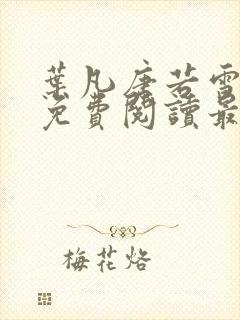 葉凡唐若雪
免費閱讀最
梅花烙